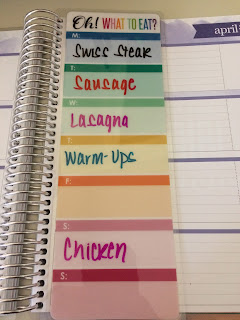 Oh! WHAT TO EAT?
april
M:
Swiss Steak
T:
Sausage
W:
Lasagna
T:
Warm-Ups
F:
S:
Chicken
S: